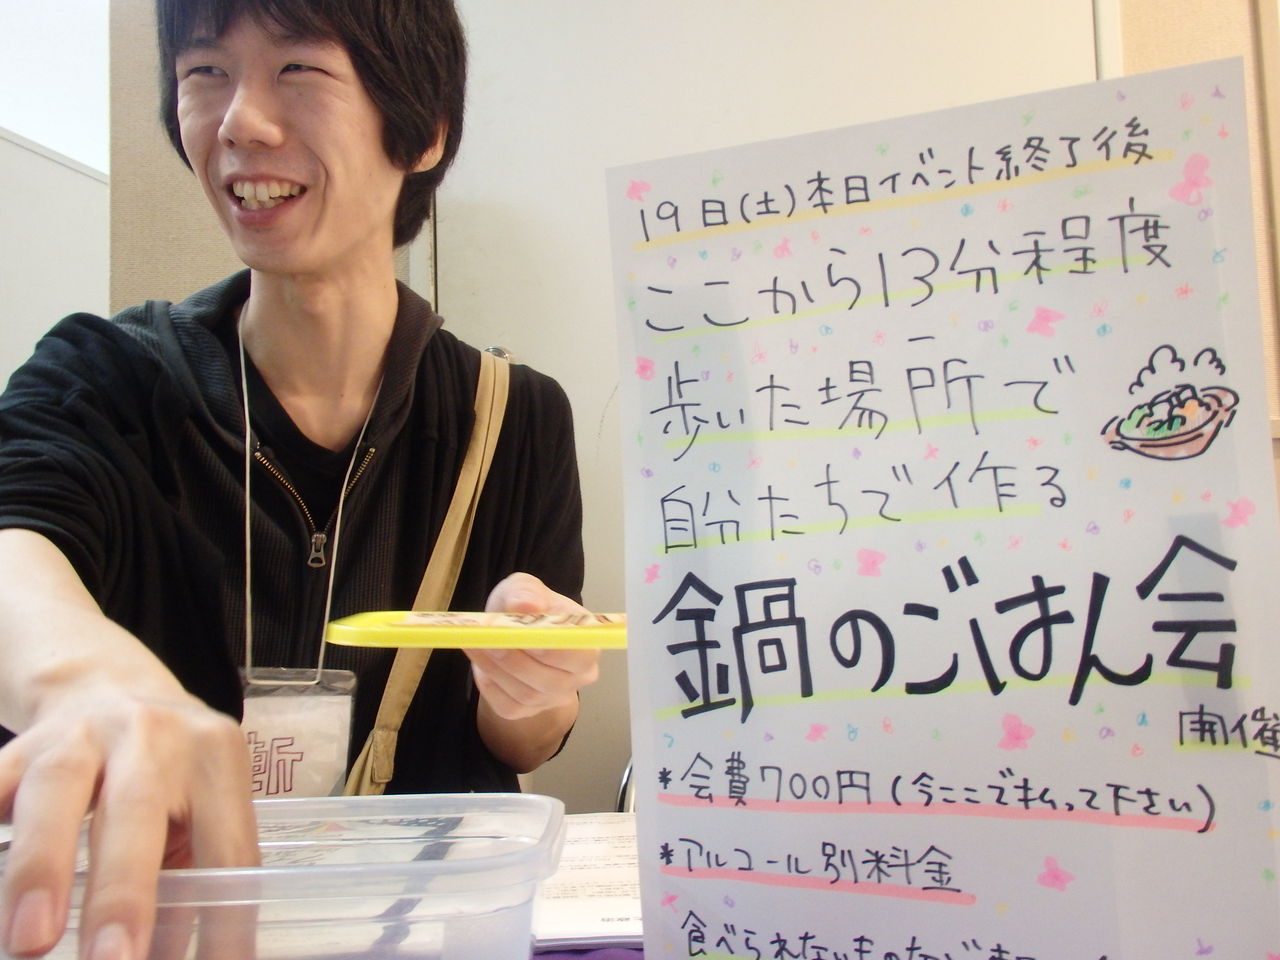 19日(土)本日イベント終了後
ここから13分程度
歩いた場所で
自分たちで作る
鍋のごはん会
開催
*会費700円(今ここで払って下さい)
*アルコール別料金
食べられないもの